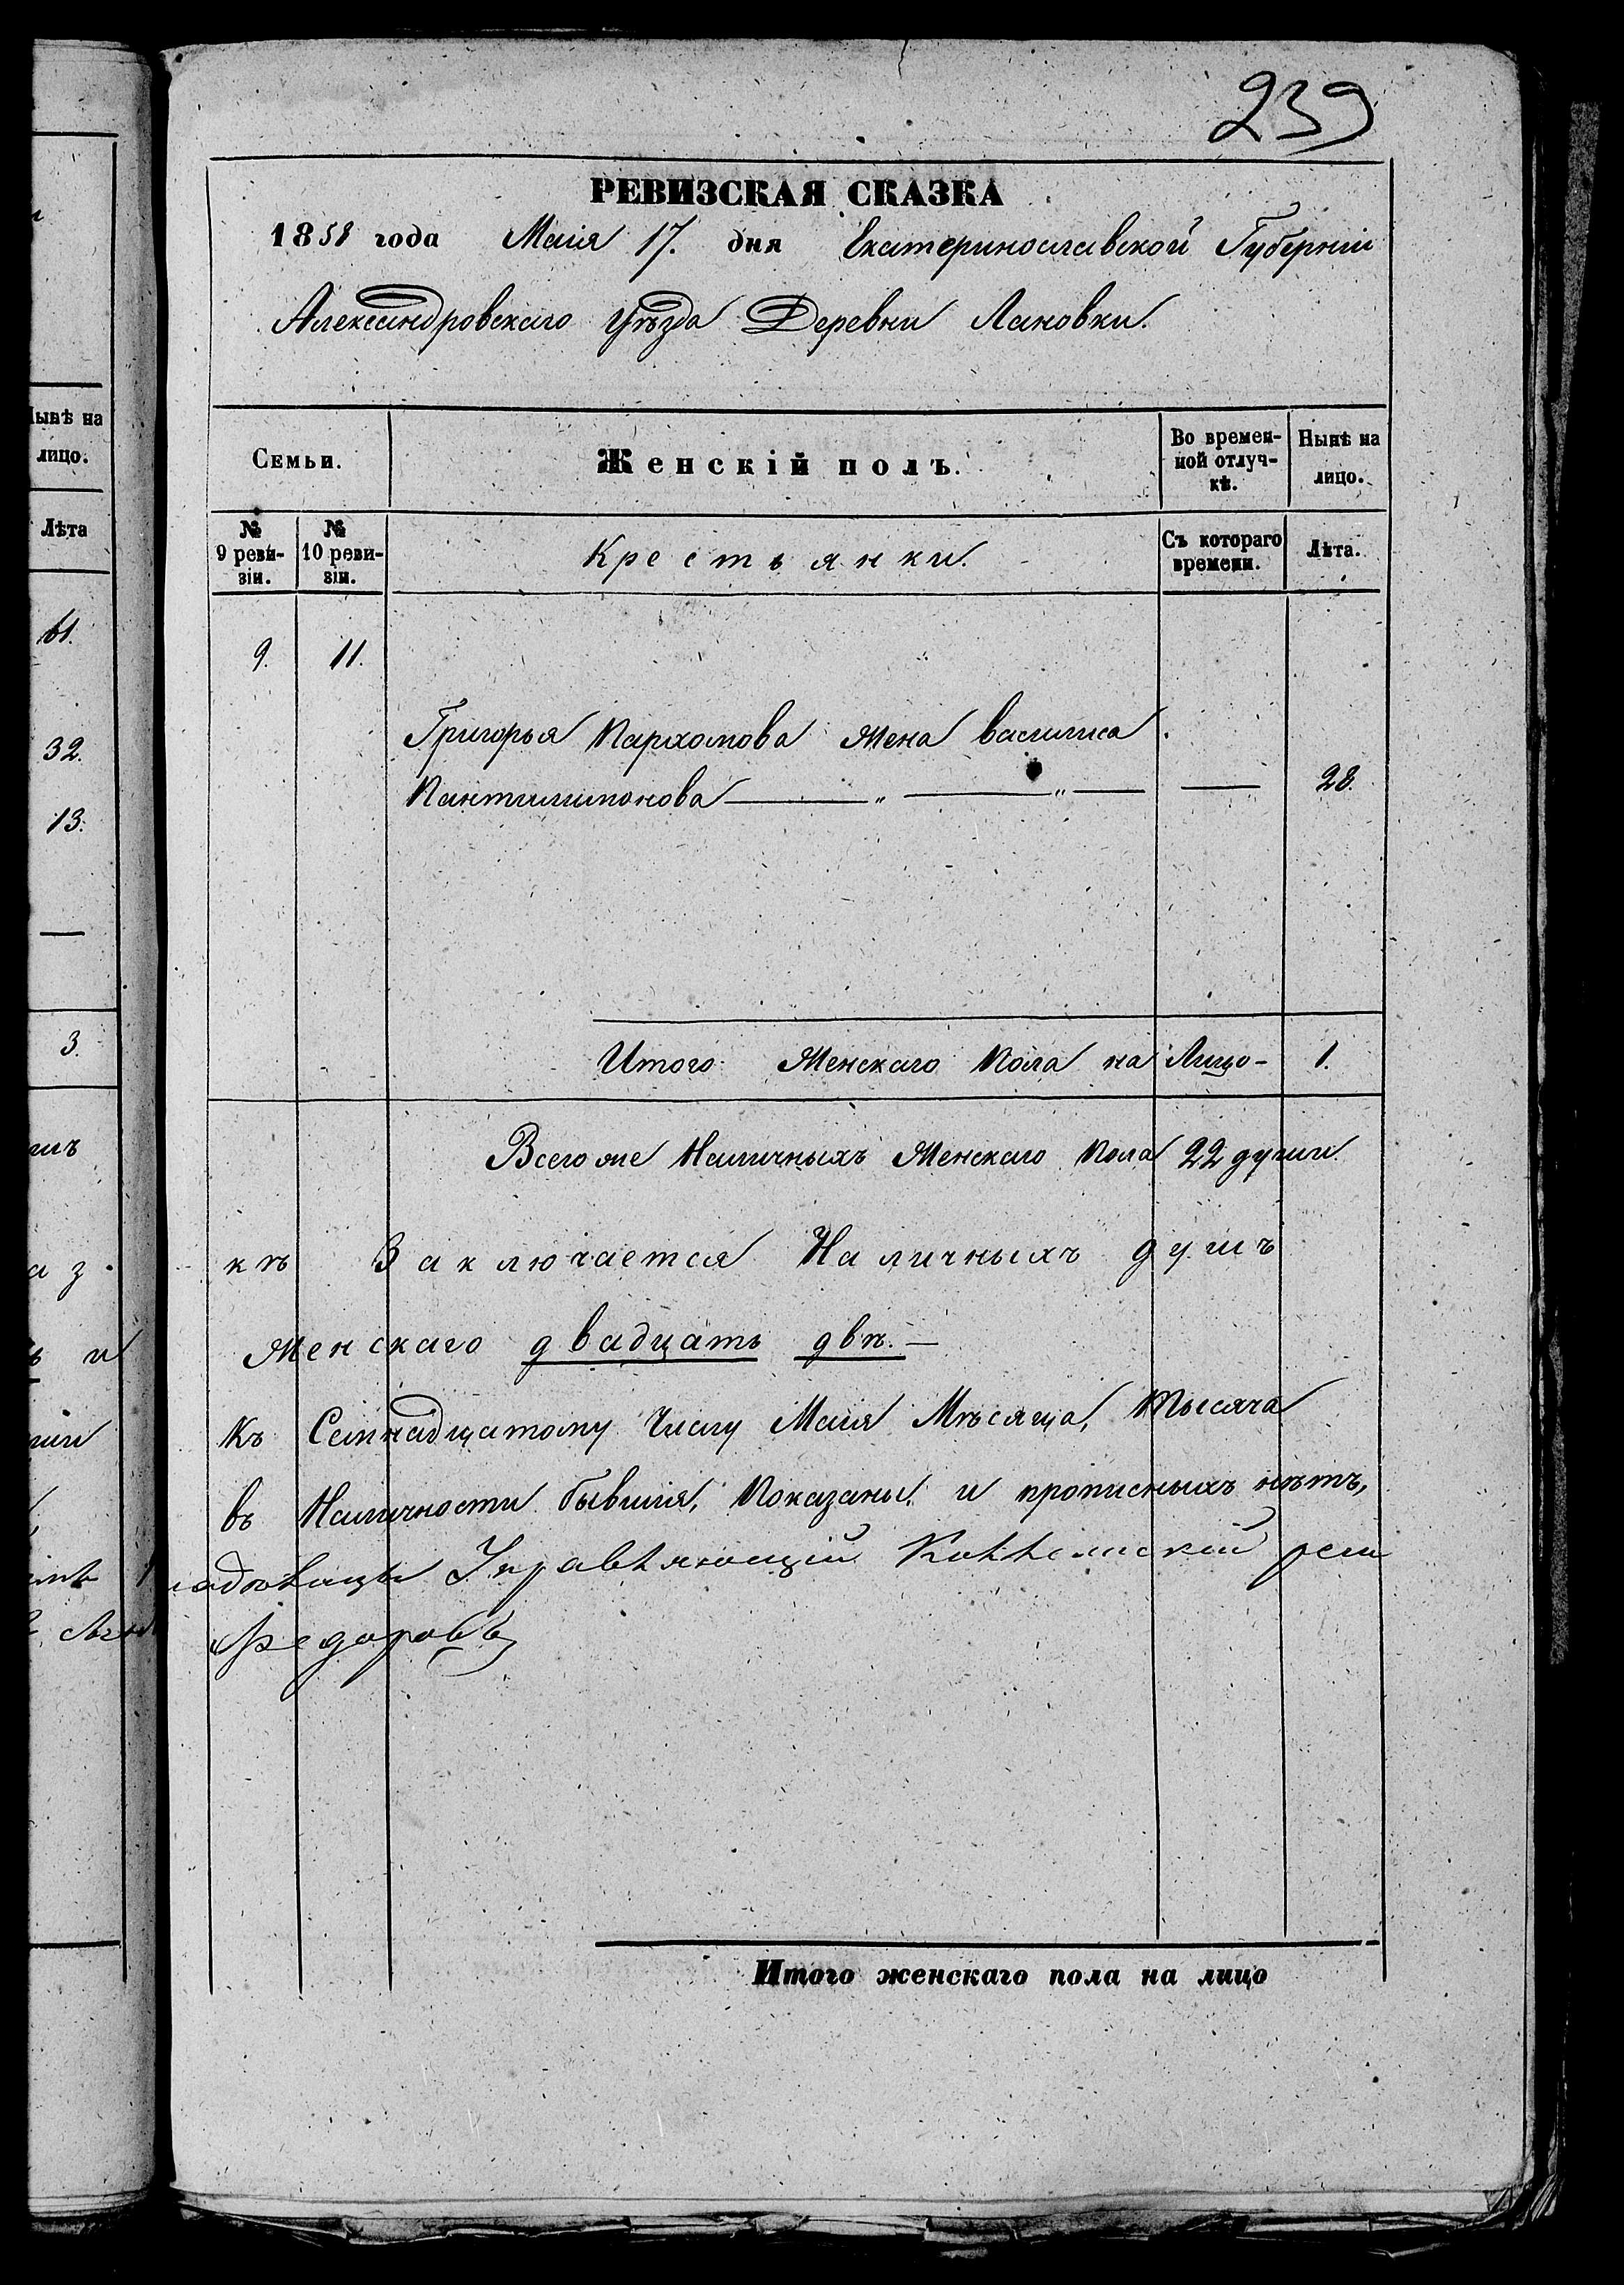 239
РЕВИЗСКАЯ СКАЗКА
1858 года Маія 17. дня Екатеринославской Губерніи
Александровскаго Уѣзда Деревни Лановки.
Семьи. Женскій полъ. Во времен-ной отлуч-кѣ. Нынѣ на лицо.
№ 9 реви-зіи. № 10 реви-зіи. Крестьянки. Съ котораго времени. Лѣта.
9. 11.
Григорья Пархомова жена василиса
Пантилимонова — „ — „ — — 28.
Итого Женскаго Пола на Лицо - 1.
Всего же Наличныхъ Женскаго Пола 22 души
кѣ Заключается Наличныхъ душъ
женскаго двадцать двѣ. —
Къ Семнадцатому Числу Маія Мѣсяца, Тысяча
въ Наличности бывшія, Показаны, и прописныхъ нѣтъ,
Управляющій
Федоровъ
Итого женскаго пола на лицо
Нынѣ на
лицо.
Лѣта
61.
32.
13.
—
3.